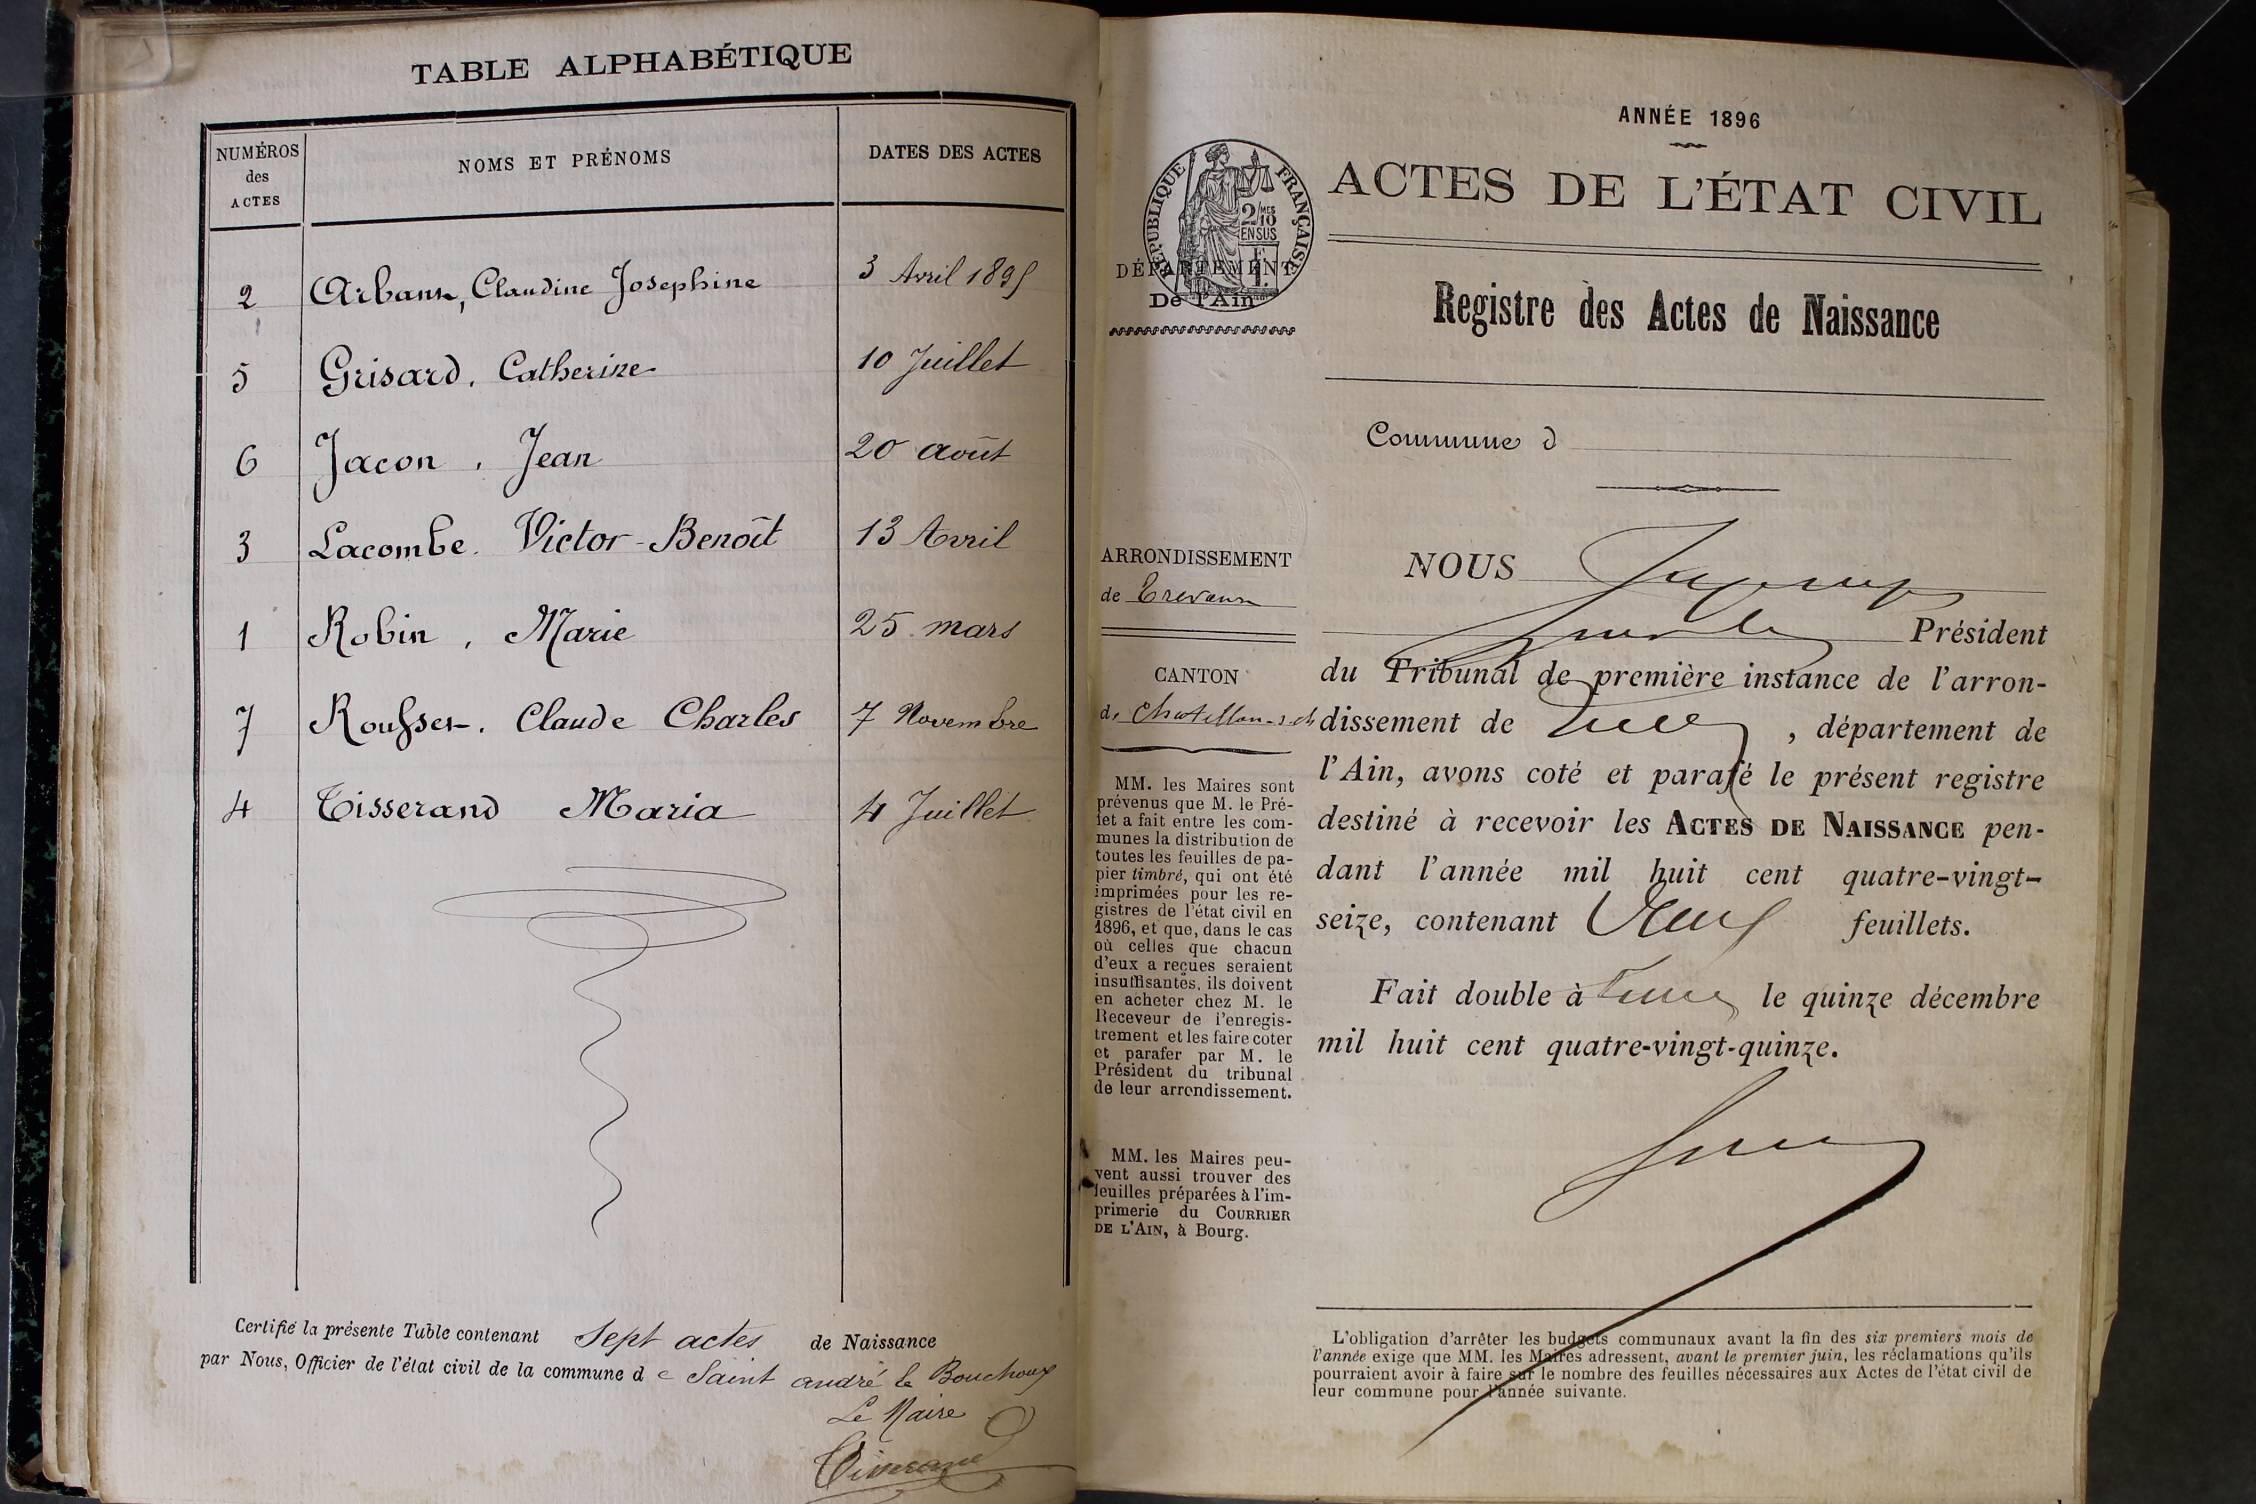 TABLE ALPHABÉTIQUE
NUMÉROS
des
ACTES
NOMS ET PRÉNOMS
DATES DES ACTES
2 Claudine Josephine 3 Avril 1895
5 Grisard, Catherine 10 Juillet
6 Jacon, Jean 20 août
3 Lacombe. Victor-Benoît 13 Avril
1 Robin, Marie 25 mars
7 Claude Charles 7 Novembre
4 Tisserand Maria 4 Juillet
Certifié la présente Table contenant Sept actes de Naissance
par Nous, Officier de l'état civil de la commune de Saint andré le Bouchoux
Le Maire
Tisserand
ANNÉE 1896
RÉPUBLIQUE FRANÇAISE
2/10 MES
EN SUS
DÉPARTEMENT
De l'Ain
ACTES DE L'ÉTAT CIVIL
Registre des Actes de Naissance
Commune d
ARRONDISSEMENT
de Trevoux
CANTON
de
MM. les Maires sont
prévenus que M. le Pré-
fet a fait entre les com-
munes la distribution de
toutes les feuilles de pa-
pier timbré, qui ont été
imprimées pour les re-
gistres de l'état civil en
1896, et que, dans le cas
où celles que chacun
d'eux a reçues seraient
insuffisantes, ils doivent
en acheter chez M. le
Receveur de l'enregis-
trement et les faire coter
et parafer par M. le
Président du tribunal
de leur arrondissement.
MM. les Maires peu-
vent aussi trouver des
feuilles préparées à l'im-
primerie du COURRIER
DE L'AIN, à Bourg.
NOUS
Président
du Tribunal de première instance de l'arron-
dissement de , département de
l'Ain, avons coté et parafé le présent registre
destiné à recevoir les ACTES DE NAISSANCE pen-
dant l'année mil huit cent quatre-vingt-
seize, contenant feuillets.
Fait double à le quinze décembre
mil huit cent quatre-vingt-quinze.
L'obligation d'arrêter les budgets communaux avant la fin des six premiers mois de
l'année exige que MM. les Maires adressent, avant le premier juin, les réclamations qu'ils
pourraient avoir à faire sur le nombre des feuilles nécessaires aux Actes de l'état civil de
leur commune pour l'année suivante.